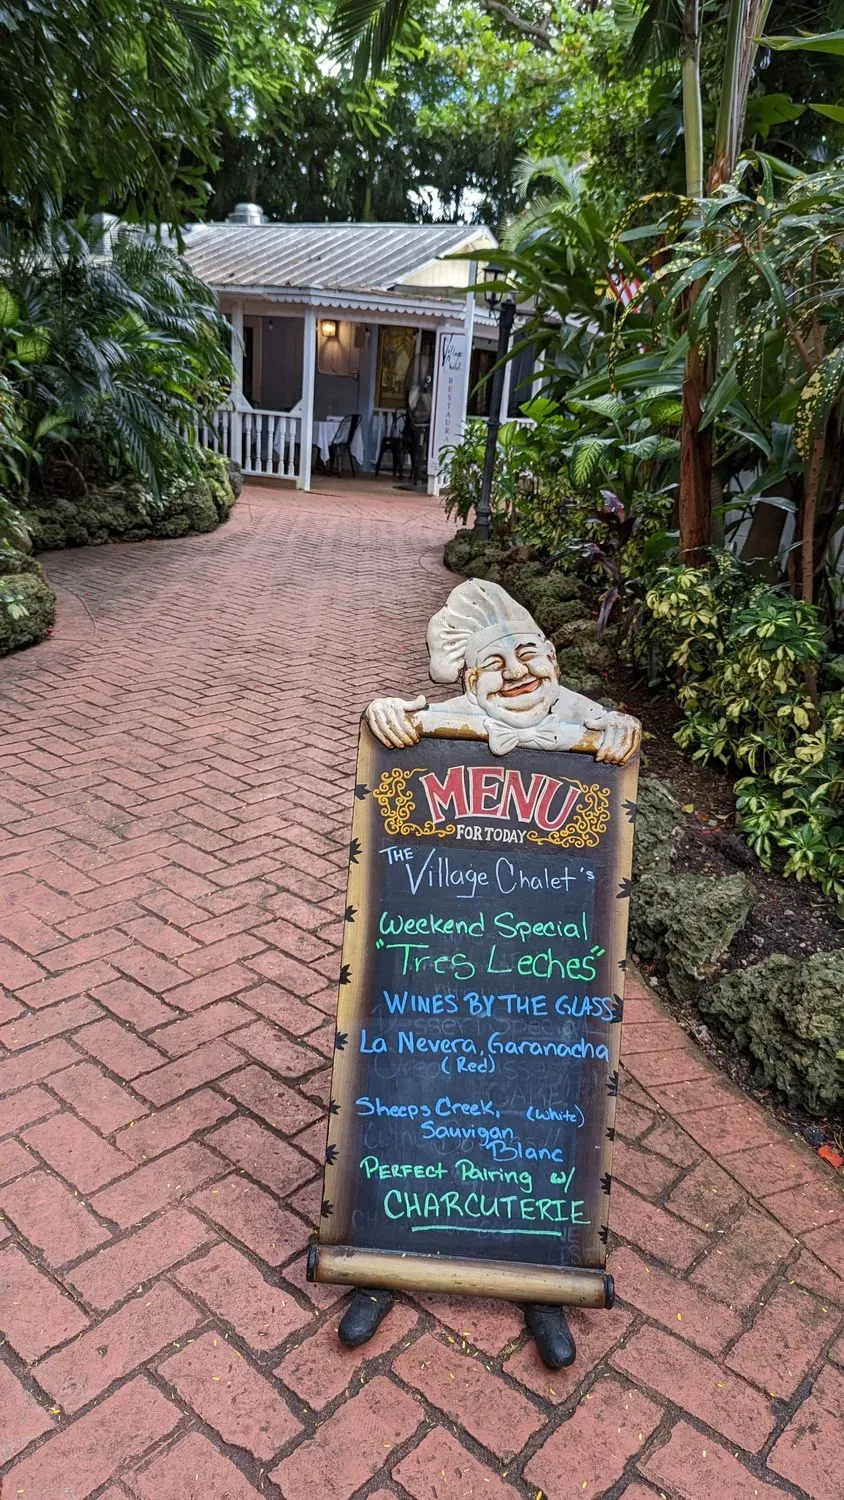 Village
Chalet
RESTAURA
MENU
FOR TODAY
THE
Village Chalet's
Weekend Special
"Tres Leches"
WINES BY THE GLASS
La Nevera, Garanacha
(Red)
Sheeps Creek, (White)
Sauvigan
Blanc
PERFECT Pairing w/
CHARCUTERIE